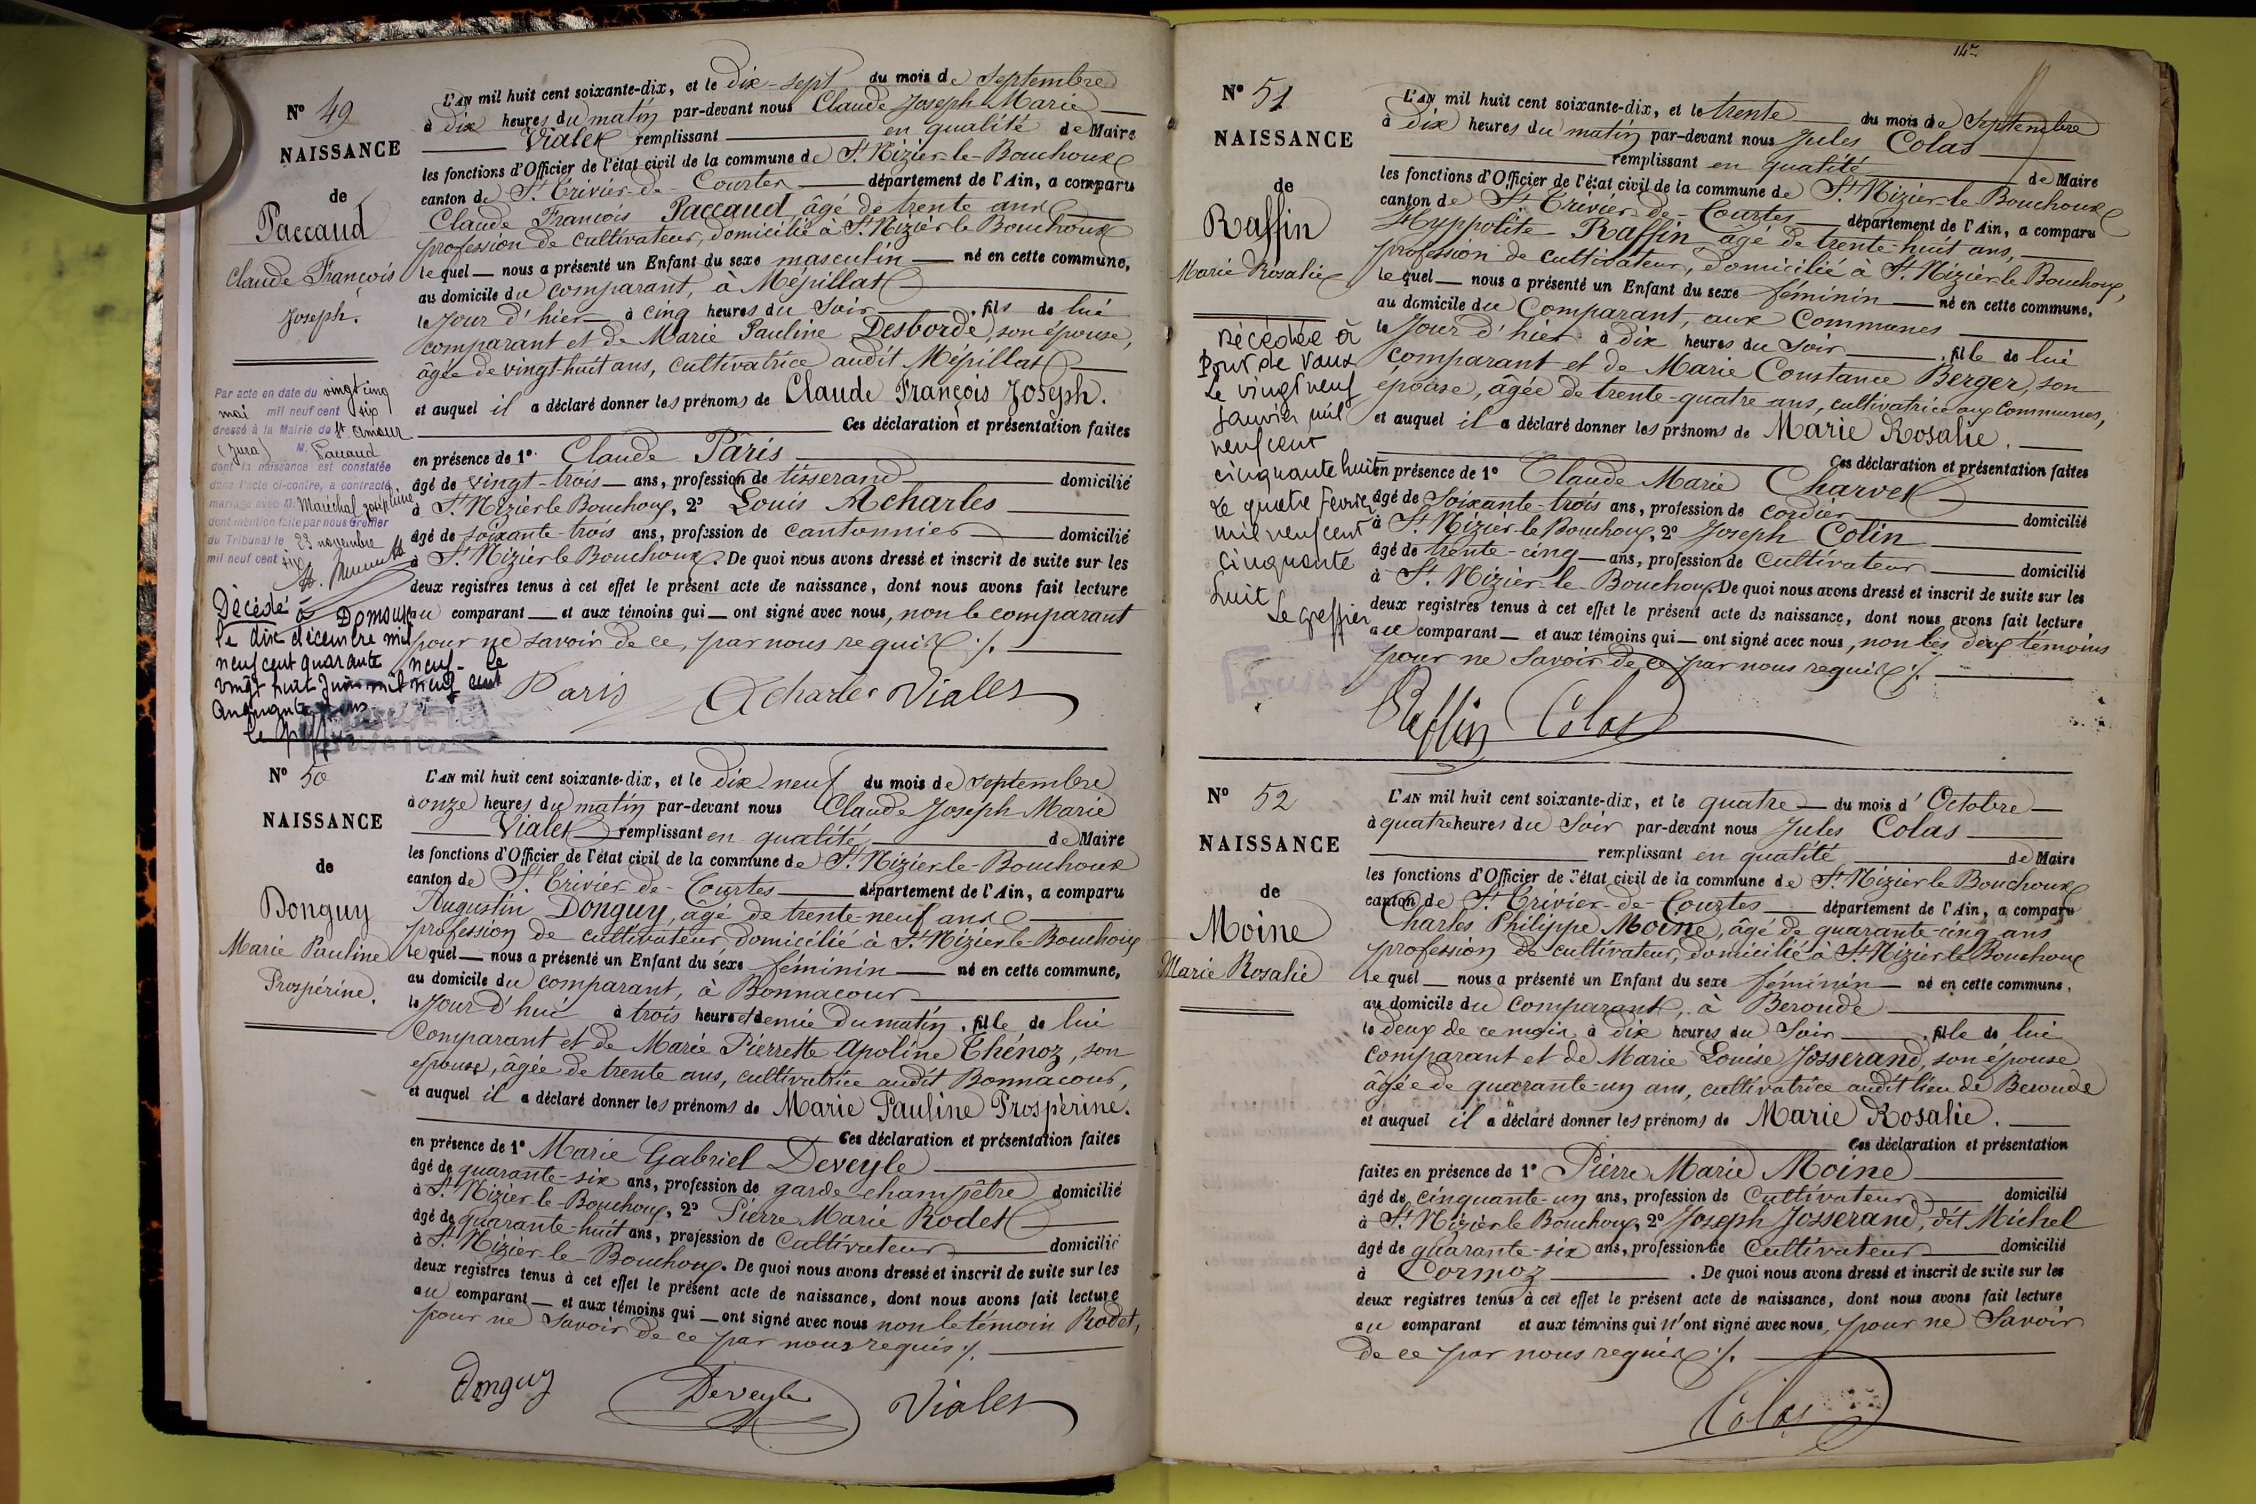 N° 49
NAISSANCE
de
Paccaud
Claude François
Joseph.
Par acte en date du vingt cinq
mai mil neuf cent six
dressé à la Mairie de St Amour
(Jura) M. Paccaud
dont la naissance est constatée
dans l'acte ci-contre, a contracté
mariage avec M. Maréchal Joséphine
dont mention faite par nous Greffier
du Tribunal le 23 novembre
mil neuf cent six
Décédé à Domsure
le dix décembre mil
neuf cent quarante neuf. Le
vingt huit juin mil neuf cent
cinquante
Le greffier
L'AN mil huit cent soixante-dix, et le dix-sept du mois de Septembre
à dix heures du matin par-devant nous Claude Joseph Marie
Vialet remplissant en qualité de Maire
les fonctions d'Officier de l'état civil de la commune de St. Nizier-le-Bouchoux
canton de St. Trivier-de-Courtes département de l'Ain, a comparu
Claude François Paccaud, âgé de trente ans
profession de cultivateur, domicilié à St. Nizier le Bouchoux
lequel nous a présenté un Enfant du sexe masculin né en cette commune,
au domicile du comparant, à Mépillat
le jour d'hier à cinq heures du soir, fils de lui
comparant et de Marie Pauline Desborde, son épouse,
âgée de vingt-huit ans, cultivatrice audit Mépillat
et auquel il a déclaré donner les prénoms de Claude François Joseph.
Ces déclaration et présentation faites
en présence de 1° Claude Pâris
âgé de vingt-trois ans, profession de tisserand domicilié
à St. Nizier le Bouchoux, 2° Louis Acharles
âgé de soixante-trois ans, profession de cantonnier domicilié
à St. Nizier le Bouchoux. De quoi nous avons dressé et inscrit de suite sur les
deux registres tenus à cet effet le présent acte de naissance, dont nous avons fait lecture
au comparant et aux témoins qui ont signé avec nous, non le comparant
pour ne savoir de ce, par nous requis ./.
Paris Acharles Vialet
N° 50
NAISSANCE
de
Donguy
Marie Pauline
Prospérine.
L'AN mil huit cent soixante-dix, et le dix neuf du mois de septembre
à onze heures du matin par-devant nous Claude Joseph Marie
Vialet remplissant en qualité de Maire
les fonctions d'Officier de l'état civil de la commune de St. Nizier-le-Bouchoux
canton de St. Trivier-de-Courtes département de l'Ain, a comparu
Augustin Donguy, âgé de trente-neuf ans
profession de cultivateur, domicilié à St. Nizier-le-Bouchoux
lequel nous a présenté un Enfant du sexe féminin né en cette commune,
au domicile du comparant, à Bonnacour
le jour d'hui à trois heures et demie du matin, fille de lui
comparant et de Marie Pierrette Apoline Thénoz, son
épouse, âgée de trente ans, cultivatrice audit Bonnacour,
et auquel il a déclaré donner les prénoms de Marie Pauline Prospérine.
Ces déclaration et présentation faites
en présence de 1° Marie Gabriel Deveyle
âgé de quarante-six ans, profession de garde champêtre domicilié
à St. Nizier-le-Bouchoux, 2° Pierre Marie Rodet
âgé de quarante-huit ans, profession de cultivateur domicilié
à St. Nizier-le-Bouchoux. De quoi nous avons dressé et inscrit de suite sur les
deux registres tenus à cet effet le présent acte de naissance, dont nous avons fait lecture
au comparant et aux témoins qui ont signé avec nous non le témoin Rodet,
pour ne savoir de ce par nous requis ./.
Donguy Deveyle Vialet
N° 51
NAISSANCE
de
Raffin
Marie Rosalie
Décédée à
Pont de Vaux
Le vingt neuf
janvier mil
neuf cent
cinquante huit
Le quatre Février
mil neuf cent
cinquante
huit
Le greffier
L'AN mil huit cent soixante-dix, et le trente du mois de Septembre
à dix heures du matin par-devant nous Jules Colas
remplissant en qualité de Maire
les fonctions d'Officier de l'état civil de la commune de St. Nizier le Bouchoux
canton de St. Trivier-de-Courtes département de l'Ain, a comparu
Hyppolite Raffin, âgé de trente-huit ans,
profession de cultivateur, domicilié à St. Nizier le Bouchoux,
lequel nous a présenté un Enfant du sexe féminin né en cette commune,
au domicile du Comparant, aux Communes
le jour d'hier à dix heures du soir, fille de lui
comparant et de Marie Constance Berger, son
épouse, âgée de trente-quatre ans, cultivatrice aux Communes,
et auquel il a déclaré donner les prénoms de Marie Rosalie.
Ces déclaration et présentation faites
en présence de 1° Claude Marie Charvet
âgé de Soixante-trois ans, profession de cordier domicilié
à St. Nizier-le-Bouchoux, 2° Joseph Colin
âgé de trente-cinq ans, profession de Cultivateur domicilié
à St. Nizier-le-Bouchoux. De quoi nous avons dressé et inscrit de suite sur les
deux registres tenus à cet effet le présent acte de naissance, dont nous avons fait lecture
au comparant et aux témoins qui ont signé avec nous, non les deux témoins
pour ne savoir de ce par nous requis ./.
Raffin Colas
N° 52
NAISSANCE
de
Moine
Marie Rosalie
L'AN mil huit cent soixante-dix, et le quatre du mois d'Octobre
à quatre heures du soir par-devant nous Jules Colas
remplissant en qualité de Maire
les fonctions d'Officier de l'état civil de la commune de St. Nizier le Bouchoux
canton de St. Trivier-de-Courtes département de l'Ain, a comparu
Charles Philippe Moine, âgé de quarante-cinq ans
profession de cultivateur, domicilié à St. Nizier le Bouchoux
lequel nous a présenté un Enfant du sexe féminin né en cette commune,
au domicile du comparant, à Beroude
le deux de ce mois à dix heures du soir, fille de lui
comparant et de Marie Louise Josserand, son épouse
âgée de quarante-un ans, cultivatrice audit lieu de Beroude
et auquel il a déclaré donner les prénoms de Marie Rosalie.
Ces déclaration et présentation
faites en présence de 1° Pierre Marie Moine
âgé de cinquante-un ans, profession de Cultivateur domicilié
à St. Nizier le Bouchoux, 2° Joseph Josserand, dit Michel
âgé de quarante-six ans, profession de cultivateur domicilié
à Cormoz. De quoi nous avons dressé et inscrit de suite sur les
deux registres tenus à cet effet le présent acte de naissance, dont nous avons fait lecture
au comparant et aux témoins qui n'ont signé avec nous, pour ne Savoir
de ce par nous requis ./.
Colas